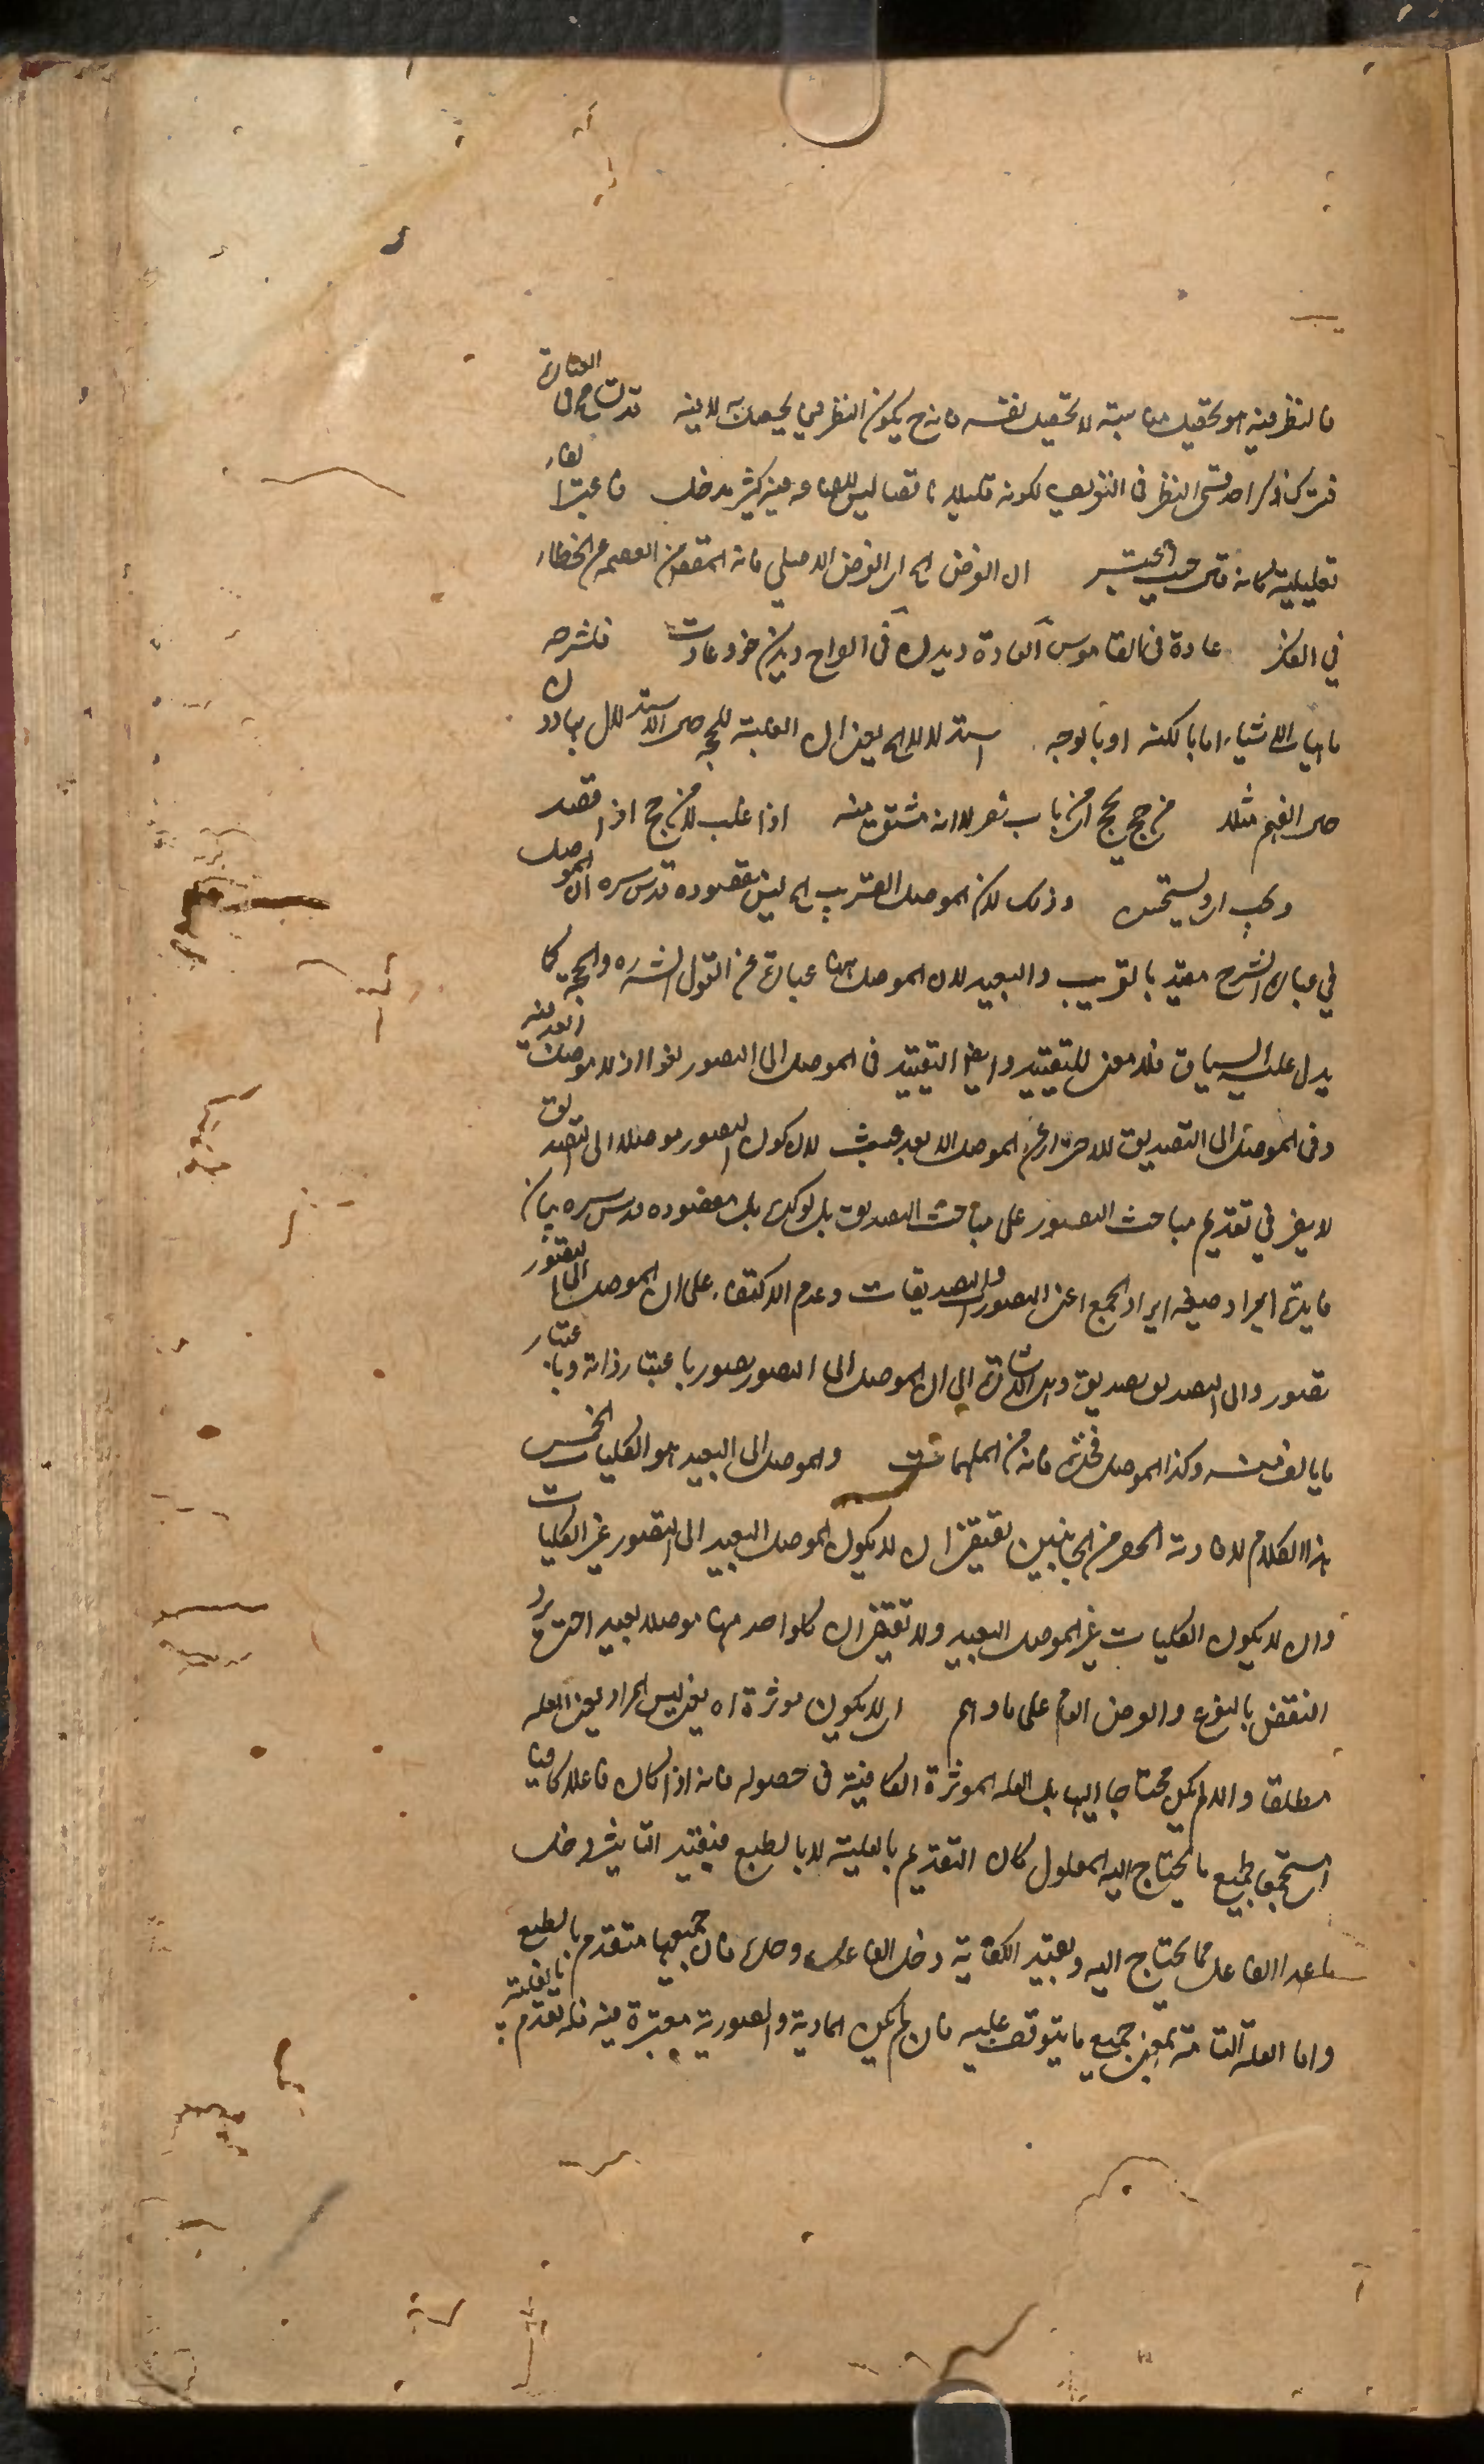 فالنظر فيه هو تحقيق مناسبته لا تحقيق نفسه فانه ح يكون النظر فيما يحصل به لا فيه قد تسامح في العبارة
فترك ذكر احد قسمي النظر في التعريف لكونه قليلا ناقصا ليس للصناعة فيه كثير مدخل فاعتبرا لغاء
تعليلية كانه قال حيث يعتبر ان الغرض الخ اى الغرض الاصلي فانه المقصود من العصمة عن الخطاء
في الفكر عادة في القاموس العادة ديدن في الواح ديدن خو وعادت فلشرحه
ماهيات الاشياء اما بالكنه او بالوجه استدلالا الخ يعني ان الغلبة للحجه حين الاستدلال بها دون
حين الفهم مثلا من حج يحج من باب نصر لا انه مشتق منه اذا غلب لا من حج اذا قصد
ويجب اى يستحسن وذلك لان الموصل القريب الخ ليس مقصوده قدس سره ان الموصل
في عبارة الشرح مقيد بالقريب والبعيد لان الموصل ههنا عبارة عن القول الشارح والحجة كما
يدل عليه السياق فلا معنى للتقييد وايضا التقييد في الموصل الى التصور لغو اذ لا موصل ابعد فيه
وفي الموصل الى التصديق للاحتراز عن الموصل الابعد عبث لان كون التصور موصلا الى التصديق
لا يضر في تقديم مباحث التصور على مباحث التصديق بل يؤكده بل مقصوده قدس سره بيان
فايدة ايراد صيغة ايراد الجمع اعنى التصورات والتصديقات وعدم الاكتفاء على ان الموصل الى التصور
تصور والى التصديق تصديق وهي الاشارة الى ان الموصل الى التصور تصور باعتبار ذاته وباعتبار
ما يتالف منه وكذا الموصل فانه من المهمات والموصل الى البعيد هو الكليات الخمس
هذا الكلام لافادته الحصر من الجانبين يقتضي ان لا يكون الموصل البعيد الى التصور غير الكليات
وان لا يكون الكليات غير الموصل البعيد ولا تقتضي ان كل واحد منها موصلا بعيدا حتى يرد
النقض بالنوع والعرض العام على ما وهم ان لا يكون موثرة اه يعني ليس المراد يعني العلة
مطلقا والا لم يكن محتاجا اليها بل العلة الموثرة الكافية في حصوله فانه اذا كان فاعلا كافيا
مستجمعا لجميع ما يحتاج اليه المعلول كان التقديم بالعلية لا بالطبع فبقيد التاثير دخل
ما عدا الفاعل مما يحتاج اليه وبقيد الكفاية دخل الفاعل وحده فان جميعها متقدم بالطبع
واما العلة التامة بمعنى جميع ما يتوقف عليه فان لم يكن المادية والصورية معتبرة فيه فله تقدم بالعلية